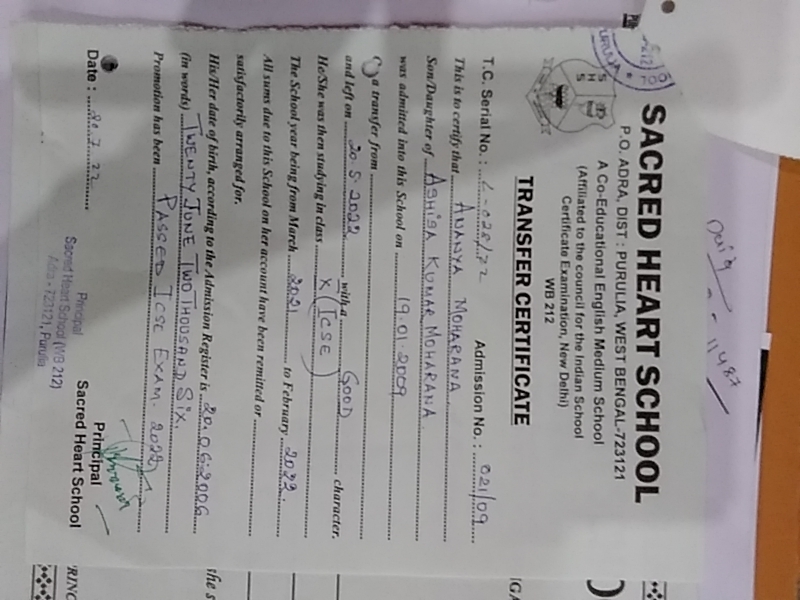 SACRED HEART SCHOOL
P.O. ADRA, DIST : PURULIA, WEST BENGAL-723121
A Co-Educational English Medium School
(Affiliated to the council for the Indian School
Certificate Examination, New Delhi)
WB 212
SHS
TRANSFER CERTIFICATE
T.C. Serial No. : Admission No. : 021/09
This is to certify that ANANYA MOHARANA
Son/Daughter of ASHISA KUMAR MOHARANA
was admitted into this School on 19.01.2009
a transfer from
and left on 20.5.2022 with a GOOD character.
He/She was then studying in class X (ICSE)
The School year being from March 2021 to February 2022.
All sums due to this School on her account have been remitted or
satisfactorily arranged for.
His/Her date of birth, according to the Admission Register is 20.06.2006
(in words) TWENTY JUNE TWO THOUSAND SIX.
Promotion has been PASSED ICSE EXAM. 2022
Date : 20.7.22
Principal
Sacred Heart School
Principal
Sacred Heart School (WB 212)
Adra - 723121, Purulia